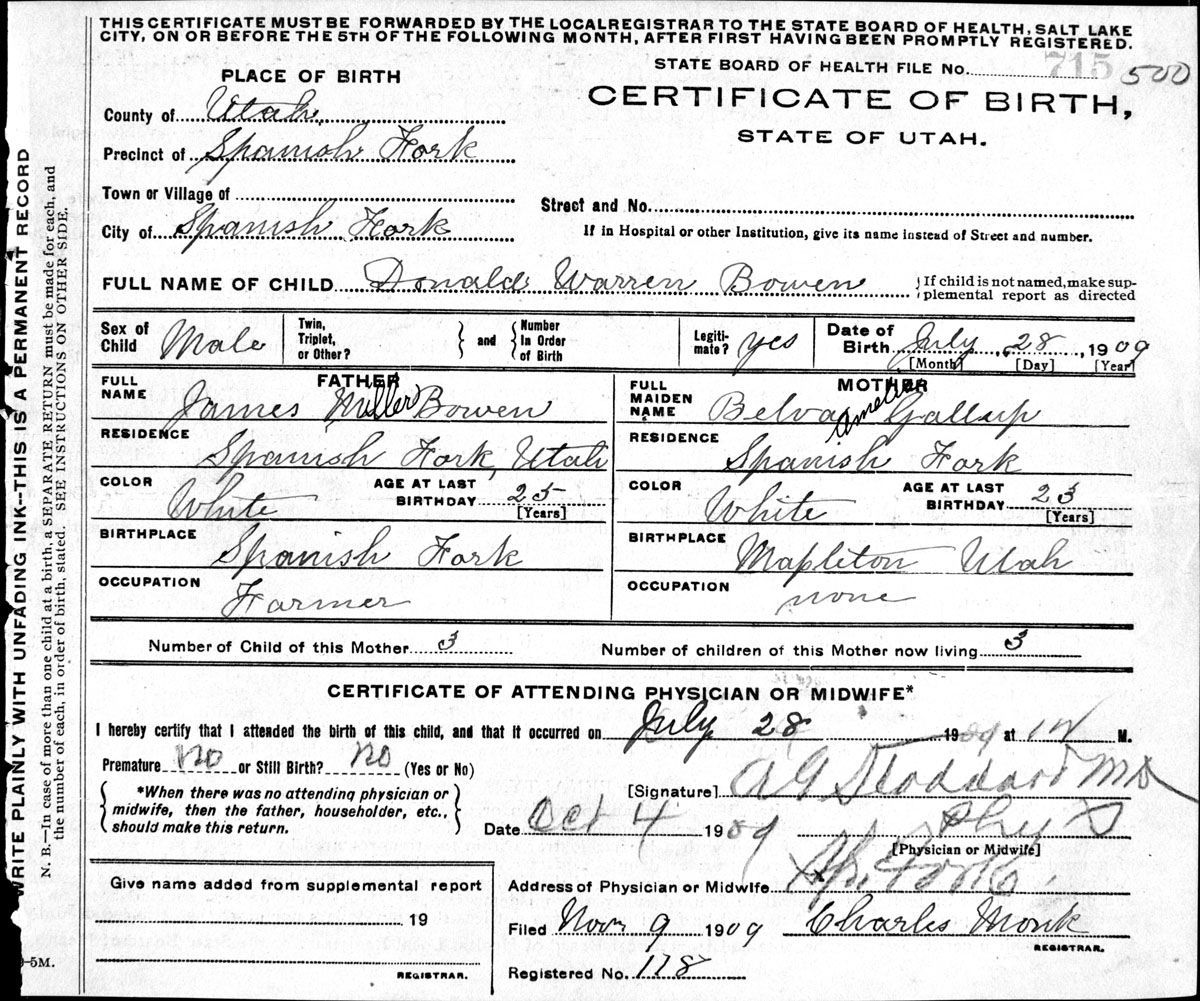 THIS CERTIFICATE MUST BE FORWARDED BY THE LOCAL REGISTRAR TO THE STATE BOARD OF HEALTH, SALT LAKE
CITY, ON OR BEFORE THE 5TH OF THE FOLLOWING MONTH, AFTER FIRST HAVING BEEN PROMPTLY REGISTERED.
STATE BOARD OF HEALTH FILE No. 715 500
PLACE OF BIRTH
CERTIFICATE OF BIRTH,
STATE OF UTAH.
County of Utah
Precinct of Spanish Fork
Town or Village of
Street and No.
City of Spanish Fork
If in Hospital or other Institution, give its name instead of Street and number.
FULL NAME OF CHILD Donald Warren Bowen
If child is not named, make sup-
plemental report as directed
Sex of Child Male
Twin, Triplet, or Other? and Number In Order of Birth
Legiti-mate? yes
Date of Birth July 28, 1909
[Month] [Day] [Year]
FATHER
FULL NAME James Miller Bowen
RESIDENCE Spanish Fork, Utah
COLOR White AGE AT LAST BIRTHDAY 25
[Years]
BIRTHPLACE Spanish Fork
OCCUPATION Farmer
MOTHER
FULL MAIDEN NAME Belva Amelia Gallup
RESIDENCE Spanish Fork
COLOR White AGE AT LAST BIRTHDAY 23
[Years]
BIRTHPLACE Mapleton Utah
OCCUPATION none
Number of Child of this Mother 3
Number of children of this Mother now living 3
CERTIFICATE OF ATTENDING PHYSICIAN OR MIDWIFE*
I hereby certify that I attended the birth of this child, and that it occurred on July 28 1909 at M.
Premature No or Still Birth? No (Yes or No)
*When there was no attending physician or
midwife, then the father, householder, etc.,
should make this return.
[Signature] A G Stoddard MD
Date Oct 4 1909
[Physician or Midwife]
Address of Physician or Midwife Sp. Fork
Give name added from supplemental report
19
REGISTRAR.
Filed Nov 9 1909 Charles Monk
REGISTRAR.
Registered No. 178
WRITE PLAINLY WITH UNFADING INK--THIS IS A PERMANENT RECORD
N. B.—In case of more than one child at a birth, a SEPARATE RETURN must be made for each, and
the number of each, in order of birth, stated. SEE INSTRUCTIONS ON OTHER SIDE.
-5M.